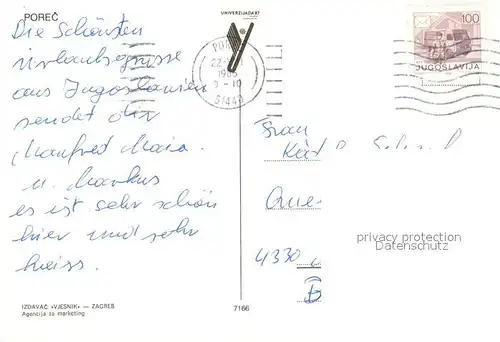 POREČ
Die Schönsten
Urlaubsgrüsse
aus Jugoslawien
sendet dir
Manfred Maria
u. Markus
es ist sehr schön
hier und sehr
heiss.
IZDAVAČ «VJESNIK» — ZAGREB
Agencija za marketing
7166
UNIVERZIJADA'87
22
1986
9-10
51440
100
JUGOSLAVIJA
Frau
4330
privacy protection
Datenschutz